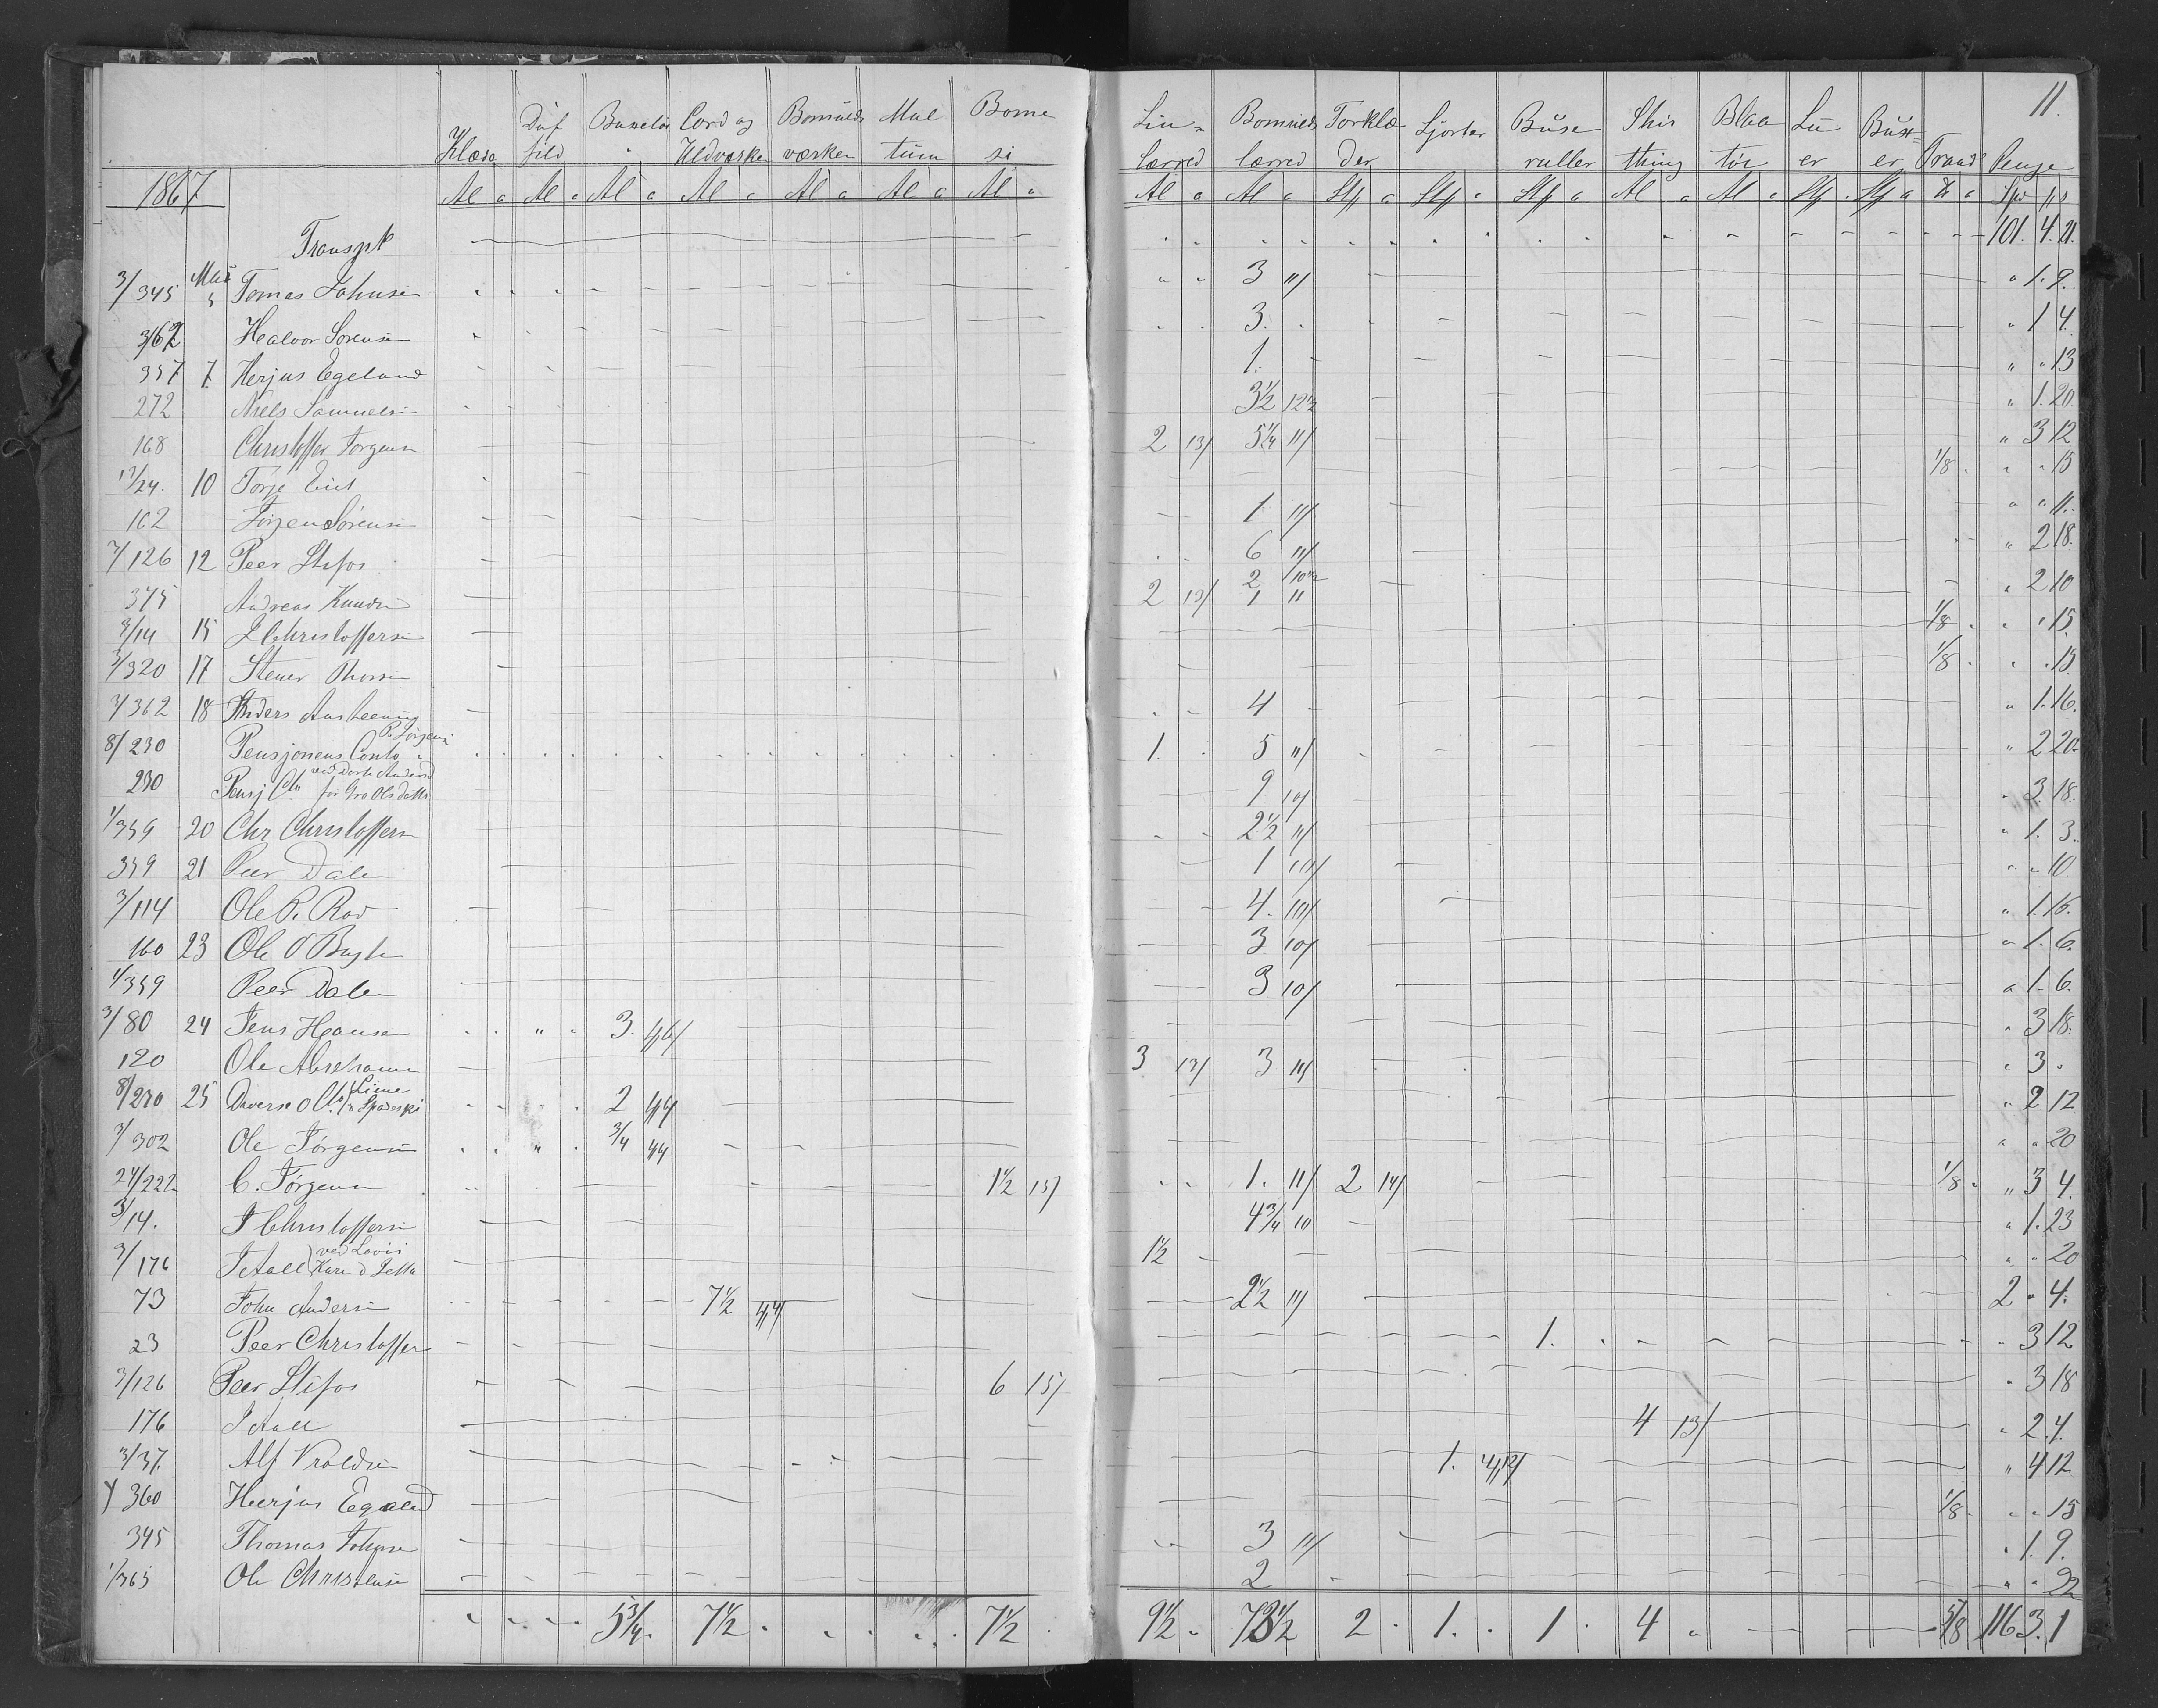 11.
Klæde Düf fild Buxetøi Cord og Uldværke Bomulds værken Mul tum Borne si Lin- Lærred Bomulds lærred Tørklæ der Skjorter Büse ruller Shir thing Blaa tøi Lü er Büx- er Traad Penge
1867 Al a Al a Al a Al a Al a Al a Al a Al a Al a Al a Al a Spd
Transpt 101. 4. 21.
3/345 Mai Tomas Johnsen 3 11/ " 1. 9.
362 Halvor Sørensen 3. " 1 4.
357 7 Herjus Egeland 1. " " 13
272 Niels Samuelsen 3½ 12½ " 1. 20.
168 Christoffer Jørgensen 2 13/ 5¼ 11/ " 3 12
/24. 10 1/8 " " 15
162 Jørgen Sørensen 1 11/ " " 11.
3/126 12 Peer Stifos 6 11/ " 2 18.
375 Andreas Knudsen 2 13/ 2 10½ 1 11 " 2 10
3/14 15 J Christoffersen 1/8 " " 15.
3/320 17 Stener Thorsen 1/8 " " 15.
3/362 18 Anders 4 " 1. 16.
8/230 Pensjonens Conto P. Jørgensen 1. 5 11/ " 2 20.
230 Pensj Cto ved Dorte Andersd for Gro Olsdatter 9 10/ " 3. 18.
1/359 20 Chr Christoffersen 2½ 11/ " 1. 3.
359 21 Peer Dalen 1 10/ " " 10
3/114 Ole P. Rød 4. 10/ " 1. 16.
160 23 Ole O 3 10/ " 1. 6.
1/359 Peer Dalen 3 10/ " 1. 6.
3/80 24 Jens Hansen 3. 46/ " 3 18.
120 Ole Abrahamsen 3 13/ 3 11/ " 3 "
8/230 25 Diverse Cto 2 44 " 2 12
3/302 Ole Jørgensen 3/4 44 " " 20
24/222 C. Jørgensen 1½ 15/ 1. 11/ 2 14/ 1/8 " 3 4.
3/14. J Christoffersen 4¾ 10 " 1. 23
3/176 J Aall ved Lovis 1½ " " 20
73 John Andersen 7½ 44/ 2½ 11/ 2 " 4.
23 Peer Christoffersen 1. " 3 12
3/126 Peer Stifos 6 15/ " 3 18
176 J Aall 4 13/ " 2. 4.
3/37. Alf Vraldsen 1. 4,12/ " 4 12
360 Herjus Egeland 1/8 " " 15
345 Thomas Johnsen 3 11/ " 1. 9.
1/365 Ole Christensen 2 " " 22
5¾ 7½ 7½ 9½ 73½ 2 1. 1 4 5/8 116 3. 1